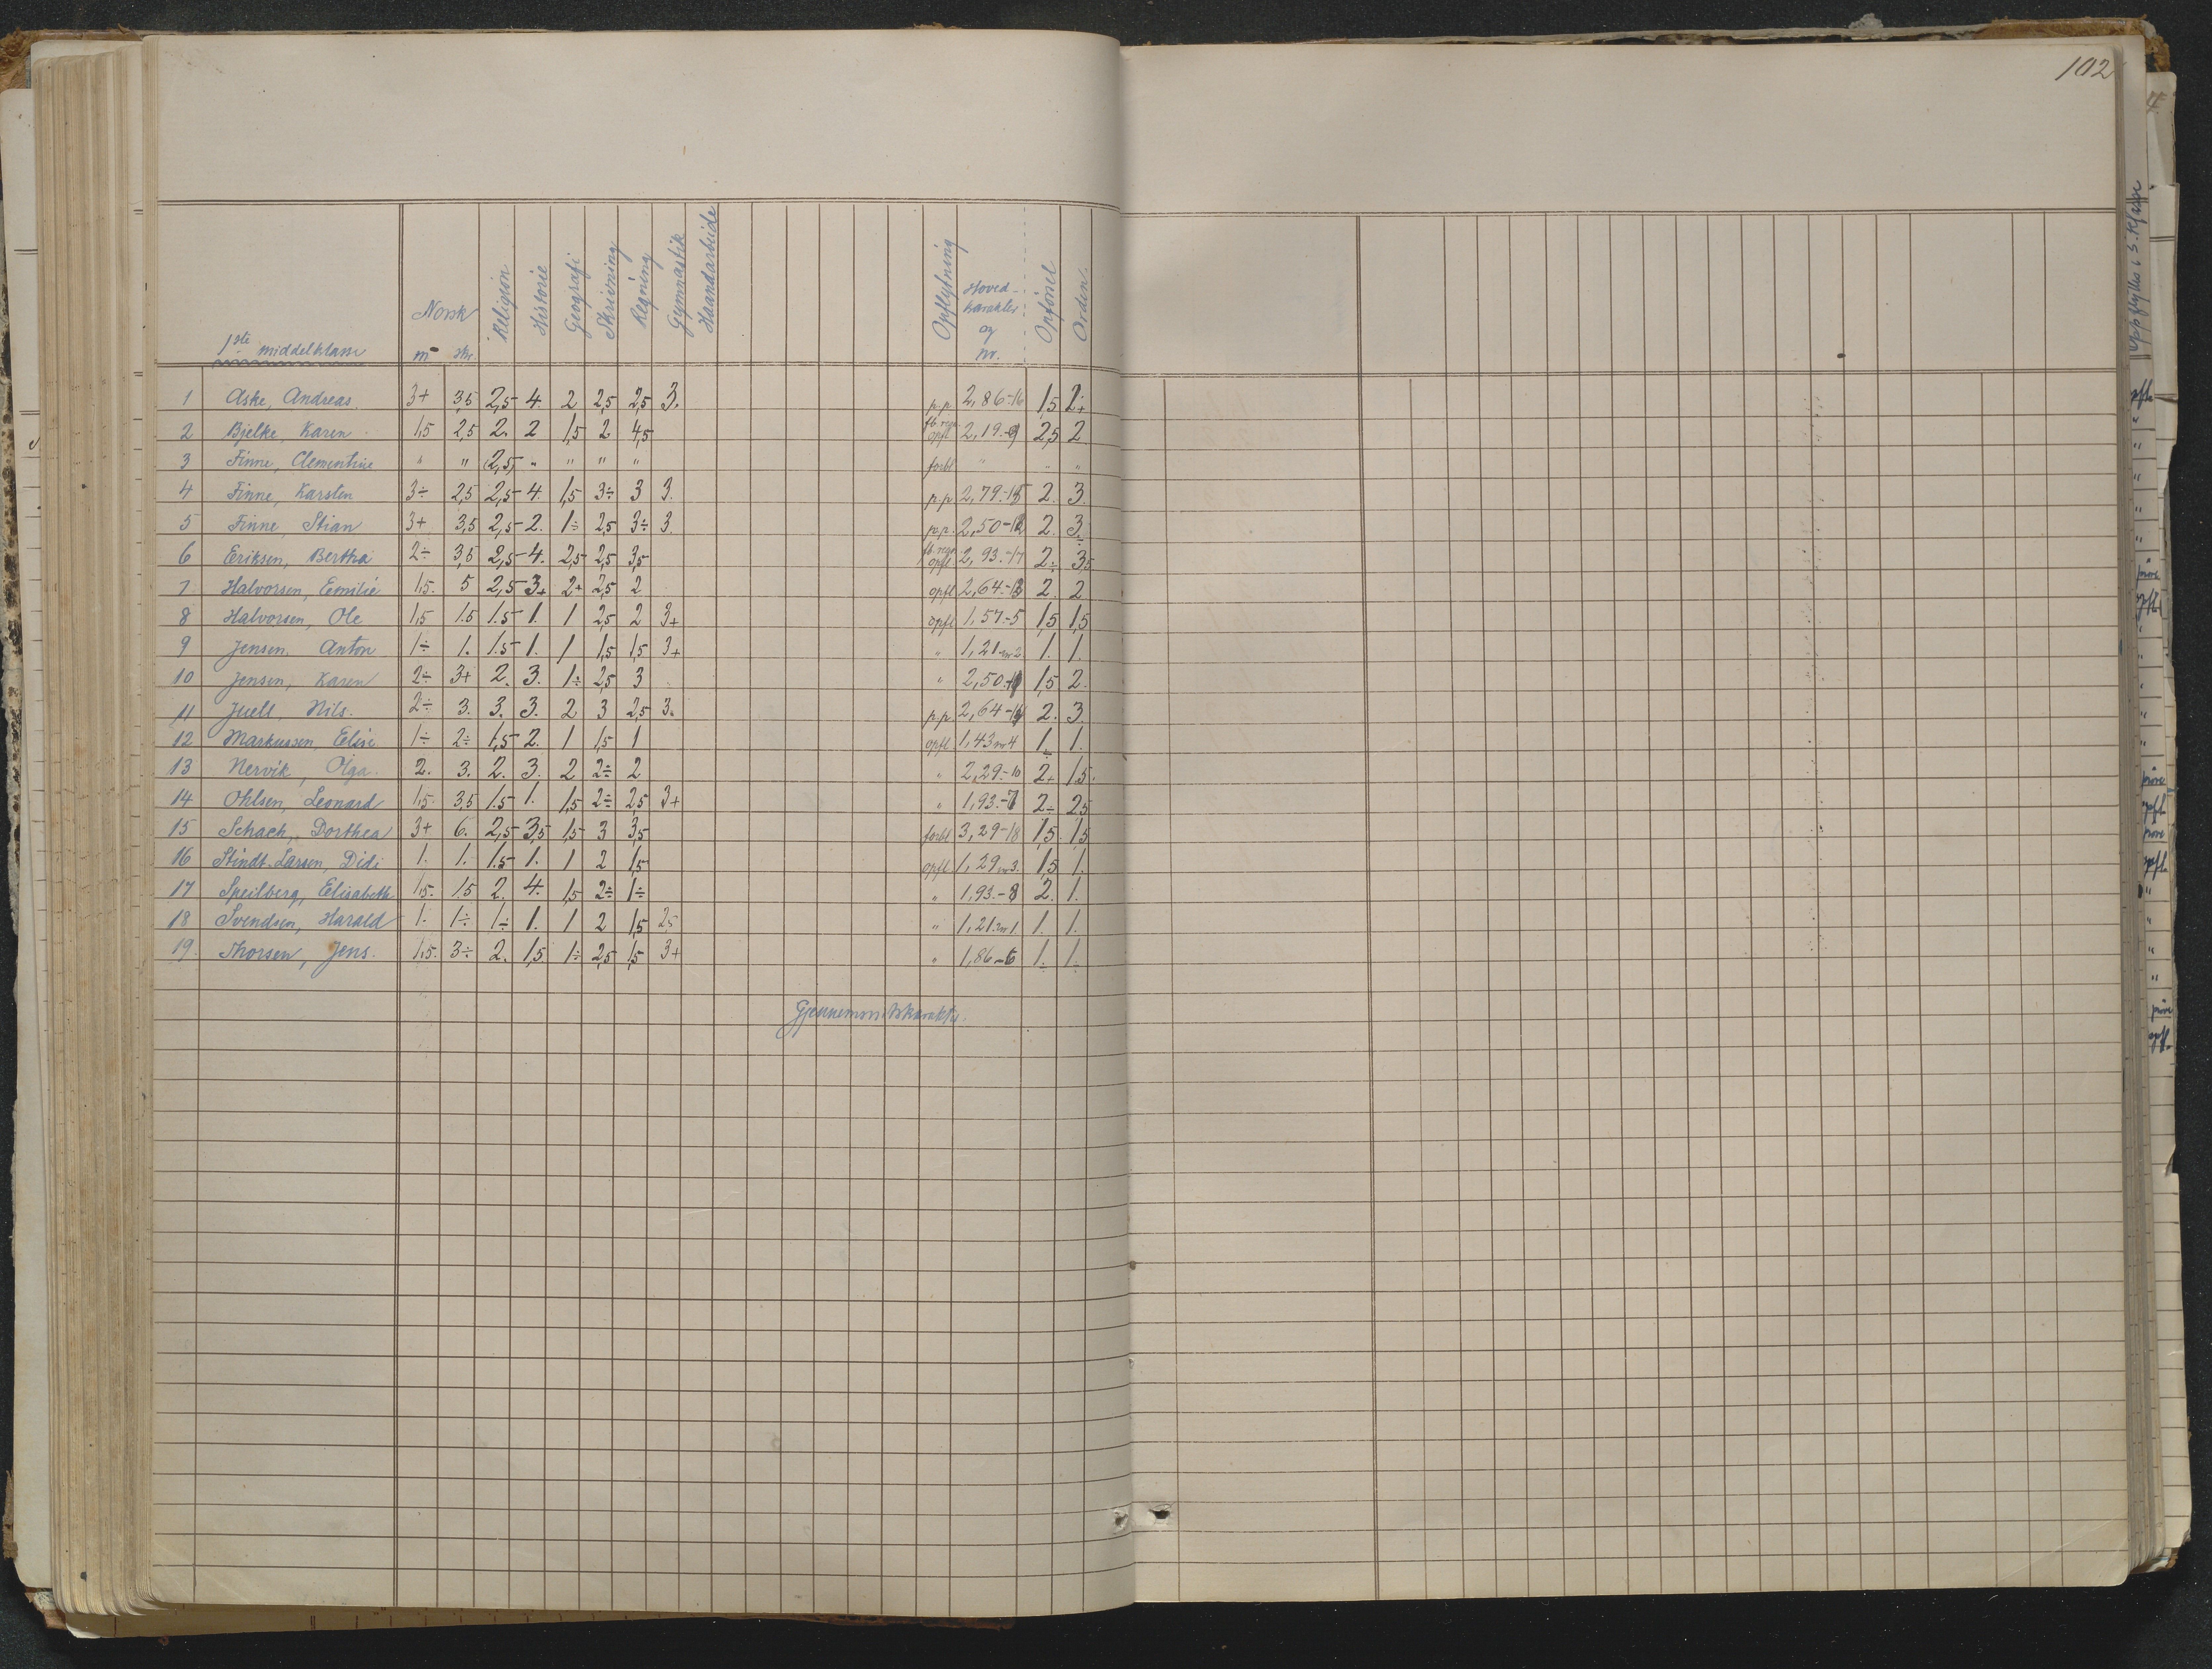 102
1ste middelklasse Norsk m skr. Religion Historie Geografi Skrivning Regning Gymnastik Haandarbeide Opflytning Hoved-karakter og nr. Opførsel Orden.
1 Aske, Andreas. 3+ 3,5 2,5 4. 2 2,5 2,5 3. p.p 2,86-16 1,5 2+
2 Bjelke, Karen 1,5 2,5 2. 2 1,5 2 4,5 opfl 2,19-9 2,5 2
3 Finne, Clementine " " (2,5) " " " " forbl " " "
4 Finne, Karsten 3÷ 2,5 2,5 4. 1,5 3÷ 3 3. p.p. 2,79-15 2. 3.
5 Finne, Stian 3+ 3,5 2,5 2. 1÷ 2,5 3÷ 3. p.p. 2,50-12 2. 3÷
6 Eriksen, Bertha 2÷ 3,5 2,5 4. 2,5 2,5 3,5 opfl. 2,93-17 2÷ 3,5
7 Halvorsen, Emilie 1,5. 5 2,5 3+ 2+ 2,5 2 opfl 2,64-13 2. 2
8 Halvorsen, Ole 1,5 1.5 1.5 1. 1 2,5 2 3+ opfl 1,57-5 1,5 1,5
9 Jensen, Anton 1÷ 1. 1.5 1. 1 1,5 1,5 3+ " 1,21 nr 2 1. 1.
10 Jensen, Karen 2÷ 3+ 2. 3. 1÷ 2,5 3 " 2,50-11 1,5 2.
11 Juell Nils. 2÷ 3. 3. 3. 2 3 2,5 3. p.p. 2,64-14 2. 3.
12 Markussen, Elise 1÷ 2÷ 1,5 2. 1 1,5 1 opfl. 1,43 nr 4 1÷ 1.
13 Nervik, Olga. 2. 3. 2. 3. 2 2÷ 2 " 2,29-10 2+ 1.5.
14 Ohlsen, Leonard 1,5. 3,5 1.5 1. 1,5 2÷ 2,5 3+ " 1,93-7 2÷ 2,5
15 Schach, Dorthea 3+ 6. 2,5 3,5 1,5 3 3,5 forbl 3,29-18 1,5. 1,5
16 Stindt-Larsen, Didi 1. 1. 1.5 1. 1 2 1,5 opfl. 1,29 nr 3. 1,5 1.
17 Speilberg, Elisabeth 1,5. 1.5 2. 4. 1,5 2÷ 1÷ " 1,93-8 2. 1.
18 Svendsen, Harald 1. 1÷ 1÷ 1. 1 2 1,5 2,5 " 1,21 nr 1 1. 1.
19. Thorsen, Jens. 1,5. 3÷ 2. 1,5 1÷ 2,5 1,5 3+ " 1,86-6 1÷ 1.